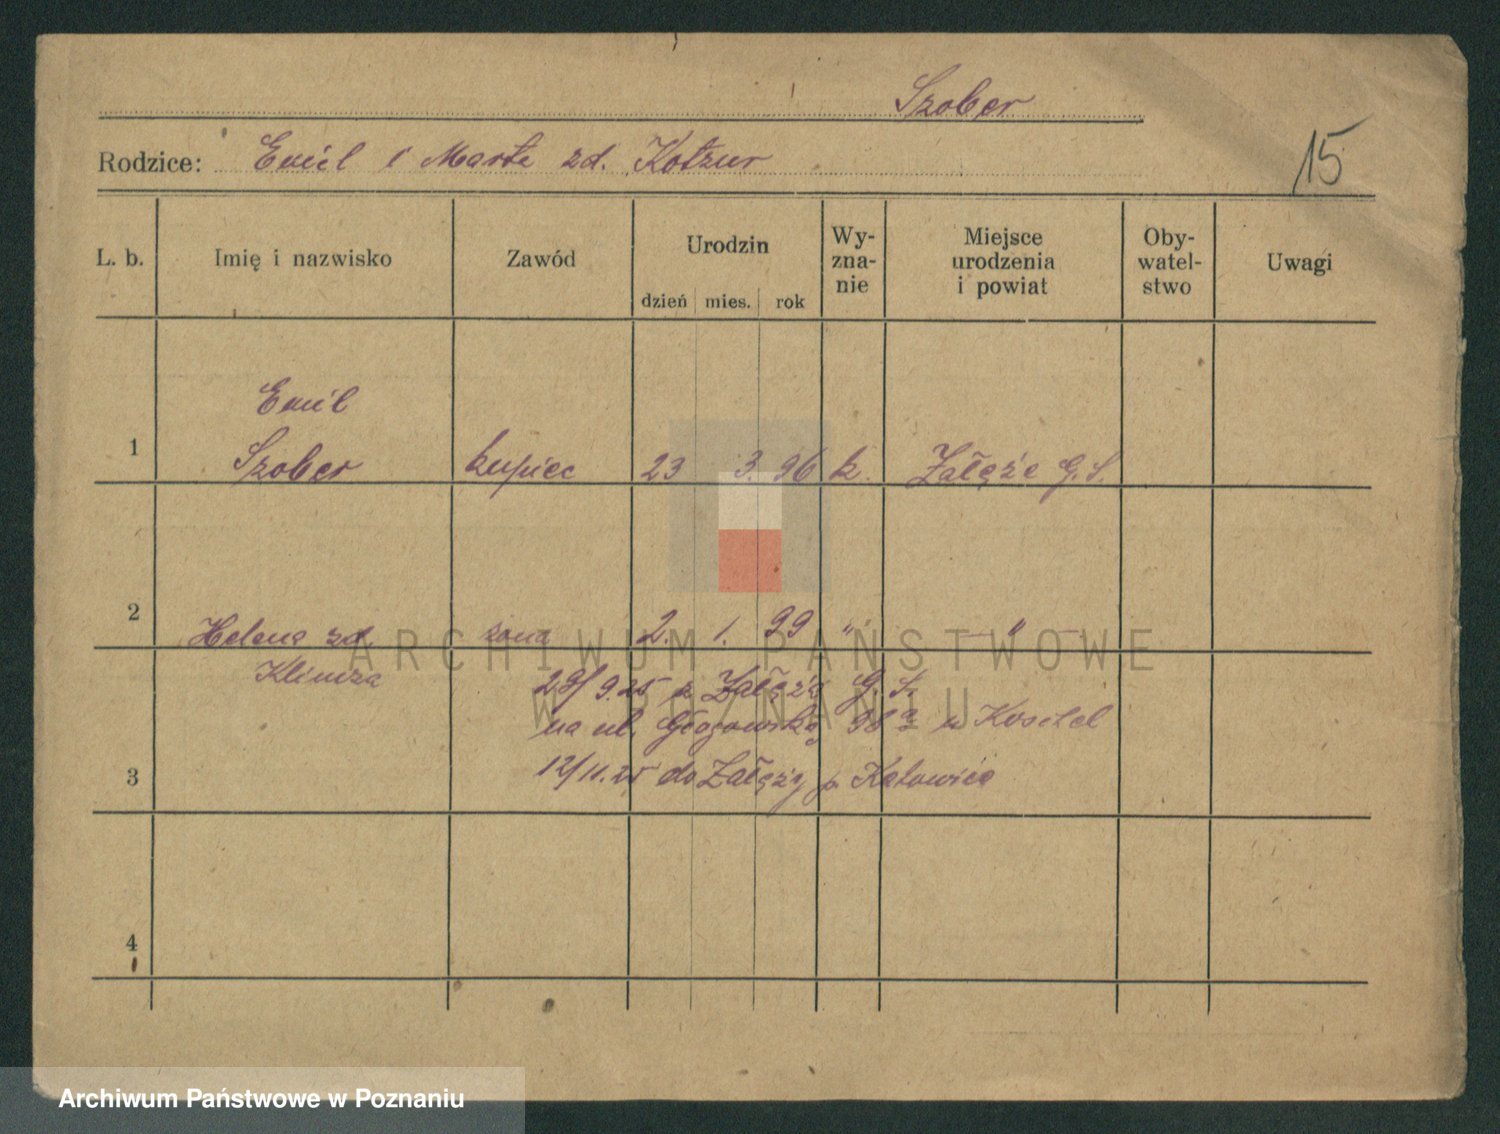 Szober
Rodzice: Emil i Marta zd. Kotzur
15
L. b. Imię i nazwisko Zawód Urodzin Wy- zna- nie Miejsce urodzenia i powiat Oby- watel- stwo Uwagi
dzień mies. rok
Emil
1 Szober kupiec 23 3. 96 k. Załęże G.S.
2 Helena zd. żona 2. 1. 99 " — " —
Klimza
29/9.25 z Załęża G. S.
na ul. Głogowską 98a u Kosche
12/11.25 do Załęży p. Katowice
3
4
ARCHIWUM PAŃSTWOWE
W POZNANIU
Archiwum Państwowe w Poznaniu